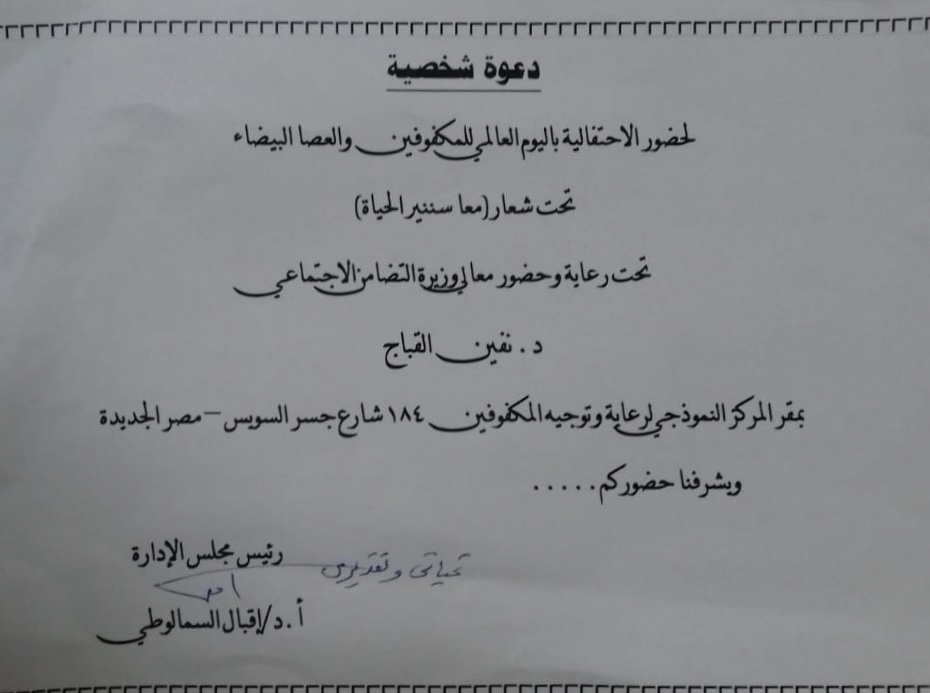 دعوة شخصية
لحضور الاحتفالية باليوم العالمي للمكفوفين والعصا البيضاء
تحت شعار (معا سننير الحياة)
تحت رعاية وحضور معالي وزيرة التضامن الاجتماعي
د. نفين القباج
بمقر المركز النموذجي لرعاية وتوجيه المكفوفين ١٨٤ شارع جسر السويس – مصر الجديدة
ويشرفنا حضوركم.....
رئيس مجلس الإدارة
تحياتى وتقديرى
أ.د/إقبال السمالوطي